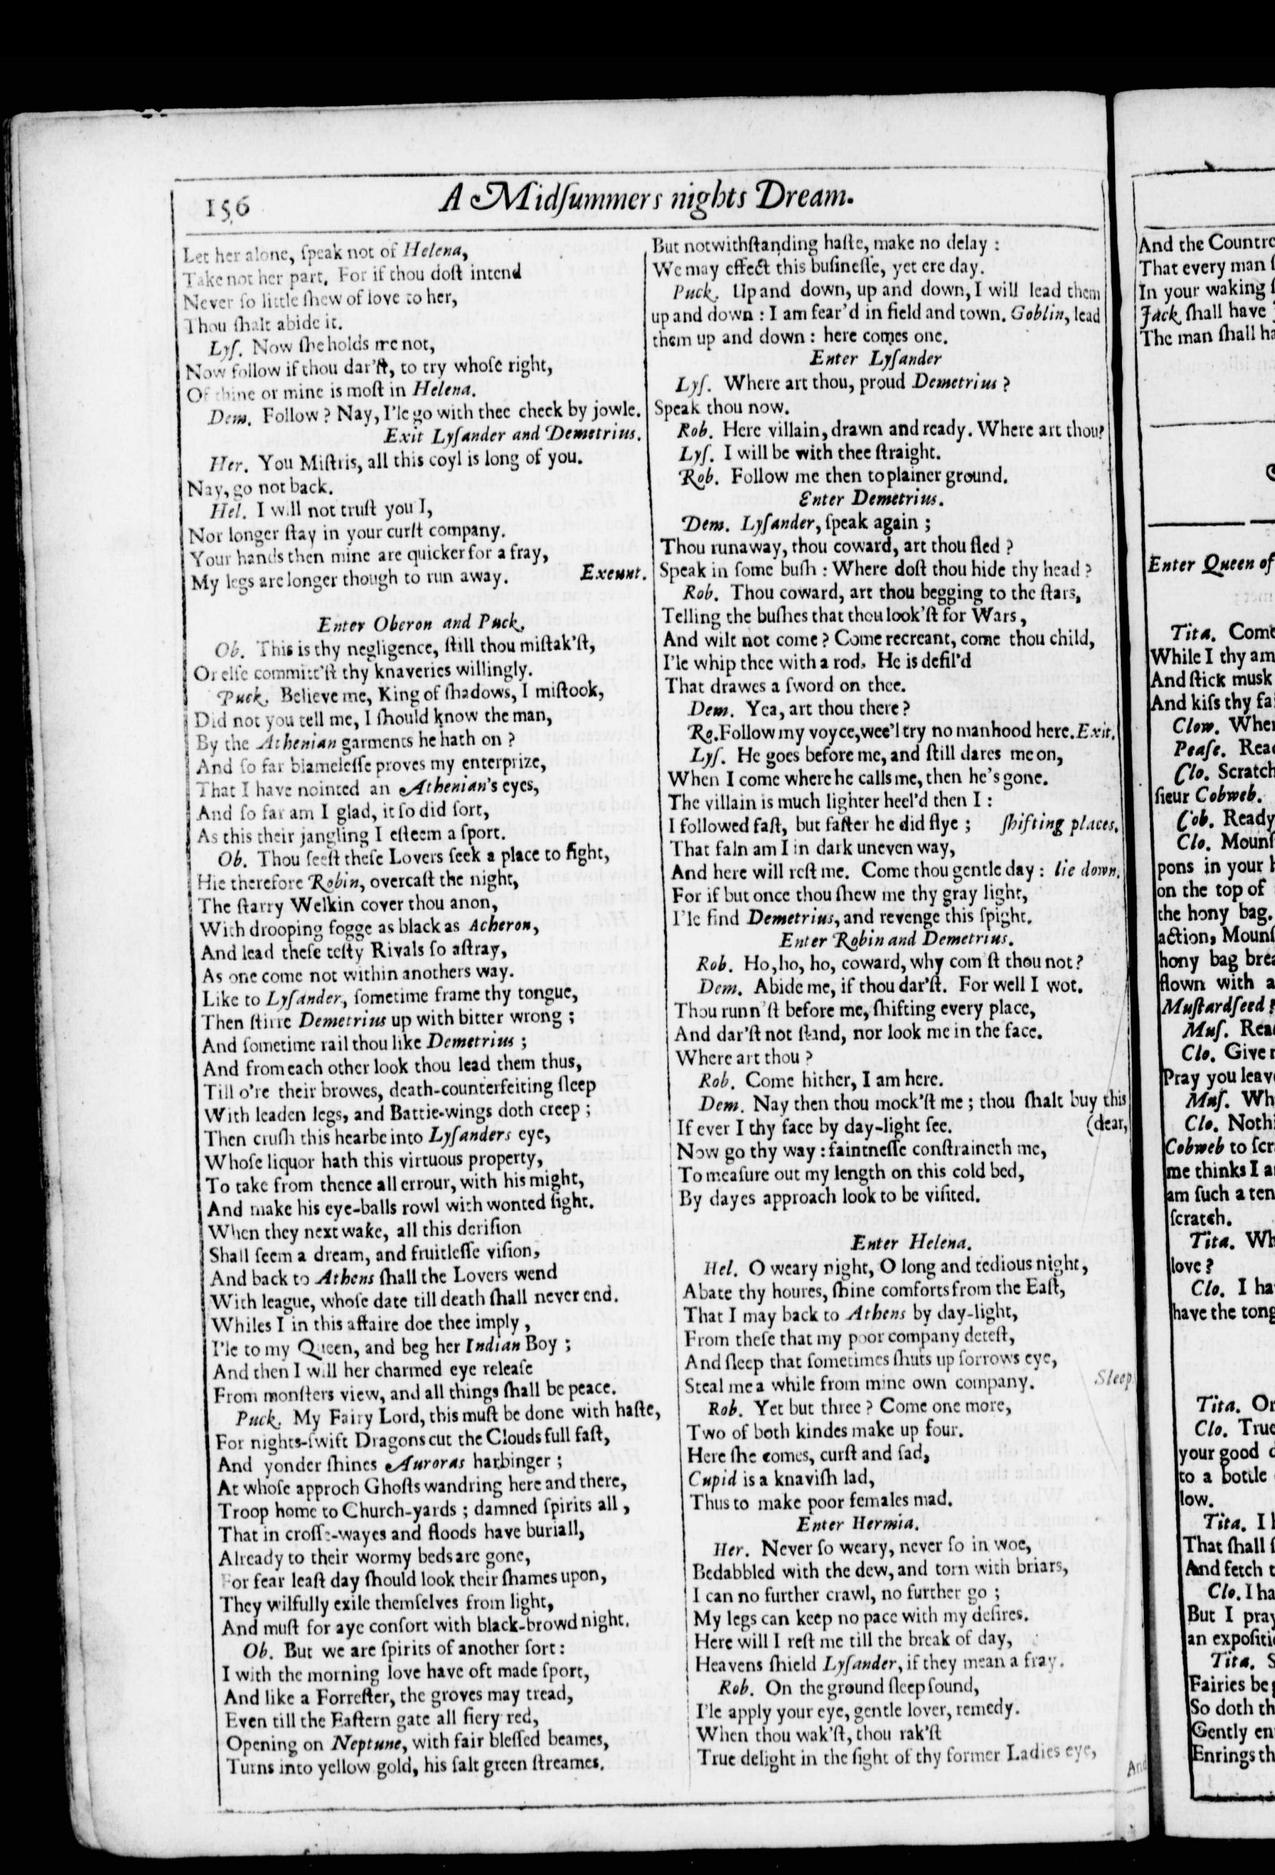 156
A Midſummers nights Dream.
Let her alone, ſpeak not of Helena,
Take not her part. For if thou doſt intend
Never ſo little ſhew of love to her,
Thou ſhalt abide it.
Lyſ. Now ſhe holds me not,
Now follow if thou dar'ſt, to try whoſe right,
Of thine or mine is moſt in Helena.
Dem. Follow? Nay, I'le go with thee cheek by jowle.
Exit Lyſander and Demetrius.
Her. You Miſtris, all this coyl is long of you.
Nay, go not back.
Hel. I will not truſt you I,
Nor longer ſtay in your curſt company.
Your hands then mine are quicker for a fray,
My legs are longer though to run away. Exeunt.
Enter Oberon and Puck.
Ob. This is thy negligence, ſtill thou miſtak'ſt,
Or elſe committ'ſt thy knaveries willingly.
Puck. Believe me, King of ſhadows, I miſtook,
Did not you tell me, I ſhould know the man,
By the Athenian garments he hath on?
And ſo far blameleſſe proves my enterprize,
That I have nointed an Athenian's eyes,
And ſo far am I glad, it ſo did ſort,
As this their jangling I eſteem a ſport.
Ob. Thou ſeeſt theſe Lovers ſeek a place to fight,
Hie therefore Robin, overcaſt the night,
The ſtarry Welkin cover thou anon,
With drooping fogge as black as Acheron,
And lead theſe teſty Rivals ſo aſtray,
As one come not within anothers way.
Like to Lyſander, ſometime frame thy tongue,
Then ſtirre Demetrius up with bitter wrong;
And ſometime rail thou like Demetrius;
And from each other look thou lead them thus,
Till o're their browes, death-counterfeiting ſleep
With leaden legs, and Battie-wings doth creep;
Then cruſh this hearbe into Lyſanders eye,
Whoſe liquor hath this virtuous property,
To take from thence all errour, with his might,
And make his eye-balls rowl with wonted ſight.
When they next wake, all this deriſion
Shall ſeem a dream, and fruitleſſe viſion,
And back to Athens ſhall the Lovers wend
With league, whoſe date till death ſhall never end.
Whiles I in this affaire doe thee imply,
I'le to my Queen, and beg her Indian Boy;
And then I will her charmed eye releaſe
From monſters view, and all things ſhall be peace.
Puck. My Fairy Lord, this muſt be done with haſte,
For nights-ſwift Dragons cut the Clouds full faſt,
And yonder ſhines Auroras harbinger;
At whoſe approch Ghoſts wandring here and there,
Troop home to Church-yards; damned ſpirits all,
That in croſſe-wayes and floods have buriall,
Already to their wormy beds are gone,
For fear leaſt day ſhould look their ſhames upon,
They wilfully exile themſelves from light,
And muſt for aye conſort with black-browd night.
Ob. But we are ſpirits of another ſort:
I with the morning love have oft made ſport,
And like a Forreſter, the groves may tread,
Even till the Eaſtern gate all fiery red,
Opening on Neptune, with fair bleſſed beames,
Turns into yellow gold, his ſalt green ſtreames.
But notwithſtanding haſte, make no delay:
We may effect this buſineſſe, yet ere day.
Puck. Up and down, up and down, I will lead them
up and down: I am fear'd in field and town. Goblin, lead
them up and down: here comes one.
Enter Lyſander
Lyſ. Where art thou, proud Demetrius?
Speak thou now.
Rob. Here villain, drawn and ready. Where art thou?
Lyſ. I will be with thee ſtraight.
Rob. Follow me then to plainer ground.
Enter Demetrius.
Dem. Lyſander, ſpeak again;
Thou runaway, thou coward, art thou fled?
Speak in ſome buſh: Where doſt thou hide thy head?
Rob. Thou coward, art thou begging to the ſtars,
Telling the buſhes that thou look'ſt for Wars,
And wilt not come? Come recreant, come thou child,
I'le whip thee with a rod. He is defil'd
That drawes a ſword on thee.
Dem. Yea, art thou there?
Ro. Follow my voyce, wee'l try no manhood here. Exit.
Lyſ. He goes before me, and ſtill dares me on,
When I come where he calls me, then he's gone.
The villain is much lighter heel'd then I:
I followed faſt, but faſter he did flye; ſhifting places.
That faln am I in dark uneven way,
And here will reſt me. Come thou gentle day: lie down.
For if but once thou ſhew me thy gray light,
I'le find Demetrius, and revenge this ſpight.
Enter Robin and Demetrius.
Rob. Ho, ho, ho, coward, why com'ſt thou not?
Dem. Abide me, if thou dar'ſt. For well I wot.
Thou runn'ſt before me, ſhifting every place,
And dar'ſt not ſtand, nor look me in the face.
Where art thou?
Rob. Come hither, I am here.
Dem. Nay then thou mock'ſt me; thou ſhalt buy this
If ever I thy face by day-light ſee. (dear,
Now go thy way: faintneſſe conſtraineth me,
To meaſure out my length on this cold bed,
By dayes approach look to be viſited.
Enter Helena.
Hel. O weary night, O long and tedious night,
Abate thy houres, ſhine comforts from the Eaſt,
That I may back to Athens by day-light,
From theſe that my poor company deteſt,
And ſleep that ſometimes ſhuts up ſorrows eye,
Steal me a while from mine own company. Sleep.
Rob. Yet but three? Come one more,
Two of both kindes make up four.
Here ſhe comes, curſt and ſad,
Cupid is a knaviſh lad,
Thus to make poor females mad.
Enter Hermia.
Her. Never ſo weary, never ſo in woe,
Bedabbled with the dew, and torn with briars,
I can no further crawl, no further go;
My legs can keep no pace with my deſires.
Here will I reſt me till the break of day,
Heavens ſhield Lyſander, if they mean a fray.
Rob. On the ground ſleep ſound,
I'le apply your eye, gentle lover, remedy.
When thou wak'ſt, thou rak'ſt
True delight in the ſight of thy former Ladies eye,
And
And the Countre
That every man
In your waking
Jack ſhall have
The man ſhall ha
Enter Queen of
Tita. Come
While I thy am
And ſtick musk
And kiſs thy fa
Clow. Wher
Peaſe. Rea
Clo. Scratch
ſieur Cobweb.
Cob. Ready
Clo. Mounſ
pons in your h
on the top of
the hony bag.
action, Mounſ
hony bag brea
flown with a
Muſtardſeed?
Muſ. Rea
Clo. Give
Pray you leave
Muſ. Wh
Clo. Nothi
Cobweb to ſcr
me thinks I a
am ſuch a ten
ſcratch.
Tita. Wh
love?
Clo. I ha
have the tong
Tita. Or
Clo. True
your good
to a bottle
low.
Tita. I
That ſhall
And fetch
Clo. I ha
But I pray
an expoſitio
Tita. S
Fairies be
So doth th
Gently en
Enrings th